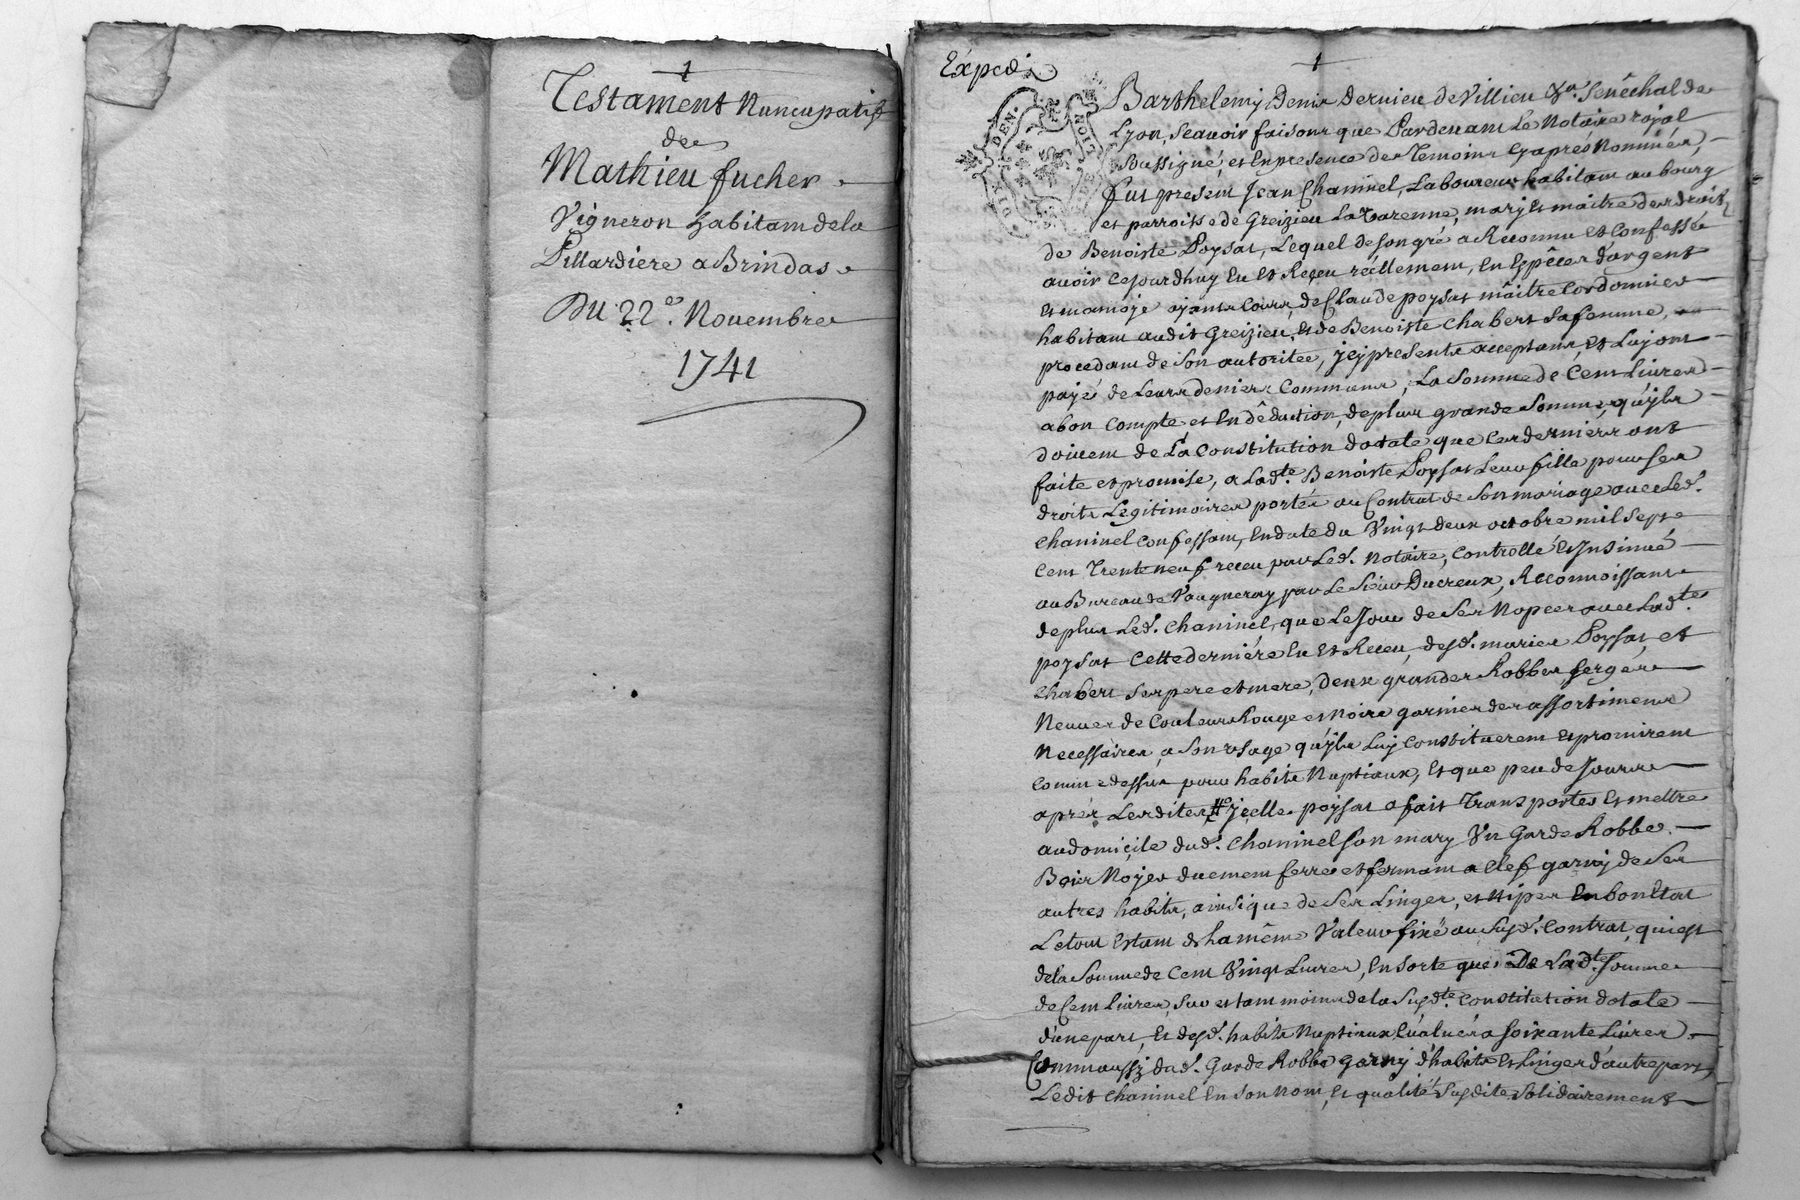 1
Testament Nuncupatif
de
Mathieu fucher
Vigneron habitant dela
Pillardiere a Brindas
Du 22e. Novembre
1741
Expedi
1
Barthelemy Denis Dervieu de Villieu Sénéchal de
Lyon, Scavoir faisons que Pardevant Le Notaire royal
Sussigné, et En presence des Temoins Cy aprés Nommés,
fut present Jean Chaninel, Laboureur habitant au bourg
et parroisse de Greizieu La Varenne, mary et maitre des droits
de Benoiste Poysat, Lequel de son gré a Reconnu et Confessé
avoir Cejourdhuy Eu et Reçeu réellement, En Especes d'argent
et monoye ayant Cours, de Claude poysat maître Cordonnier
habitant audit Greizieu, et de Benoiste Chabert sa femme,
procedant de son autoritée, jcy presents acceptans, et Luy ont
payé de Leurs deniers Communs, La Somme de Cent Livres
a bon Compte et En déduction, de plus grande Somme, qu'yls
doivent de La Constitution dotale que Ces derniers ont
faite et promise, a Lad.te Benoiste Poysat Leur fille pour ses
droits Legitimaires portés au Contrat de Son mariage avec Led.
Chaninel Confessant, En date du Vingt deux octobre mil Sept
Cent Trente neuf receu par Led. Notaire, Controllé et Insinué
au Bureau de Vaugneray par Le Sieur Ducreux, Reconnoissant
de plus Led. Chaninel, que Le Jour de Ses Nopces avec Lad.te
poysat Cette derniére Eu et Receu, desd. mariés Poysat, et
Chabert Ses pere et mere, deux grandes Robbes Serge
Neuves de Couleurs Rouge et Noire garnies des assortimens
Necessaires, a Son Usage qu'yls Luy Constituerent et promirent
Comme dessus pour habits Nuptiaux, Et que peu de Jours
aprés Lesdites jcelle poysat a fait Transporter et mettre
au domicile dud. Chaninel Son mary Un Garde Robbe
Bois Noyer duement ferré et fermant a Clef garny de Ses
autres habits, ainsi que de Ses Linges, et Nipes En bon Etat
Le tout Estant de la même Valeur fixé au Susd. Contrat, qui est
de la Somme de Cent Vingt Livres, En Sorte que De Lad.te Somme
de Cent Livres, Sur et tant moins de la Susd.te Constitution dotale
d'une part, Et desd. habits Nuptiaux Evalués a Soixante Livres
Comme aussy dud. Garde Robbe garny d'habits et Linges d'autre part,
Ledit Chaninel En Son Nom, et qualité Susdite Solidairement